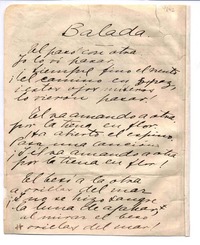 Balada
El pasó con otra
yo lo vi pasar.
Siempre fino el viento
i el camino en paz,
i estos ojos míseros
lo vieron pasar!
El va amando a otra
por la tierra en flor.
Ha abierto el espino
pasa una canción
i él va amando a otra
por la tierra en flor!
El besó a la otra
a orillas del mar
i no se hizo sangre
la luna de azahar
al mirar el beso
a orillas del mar!